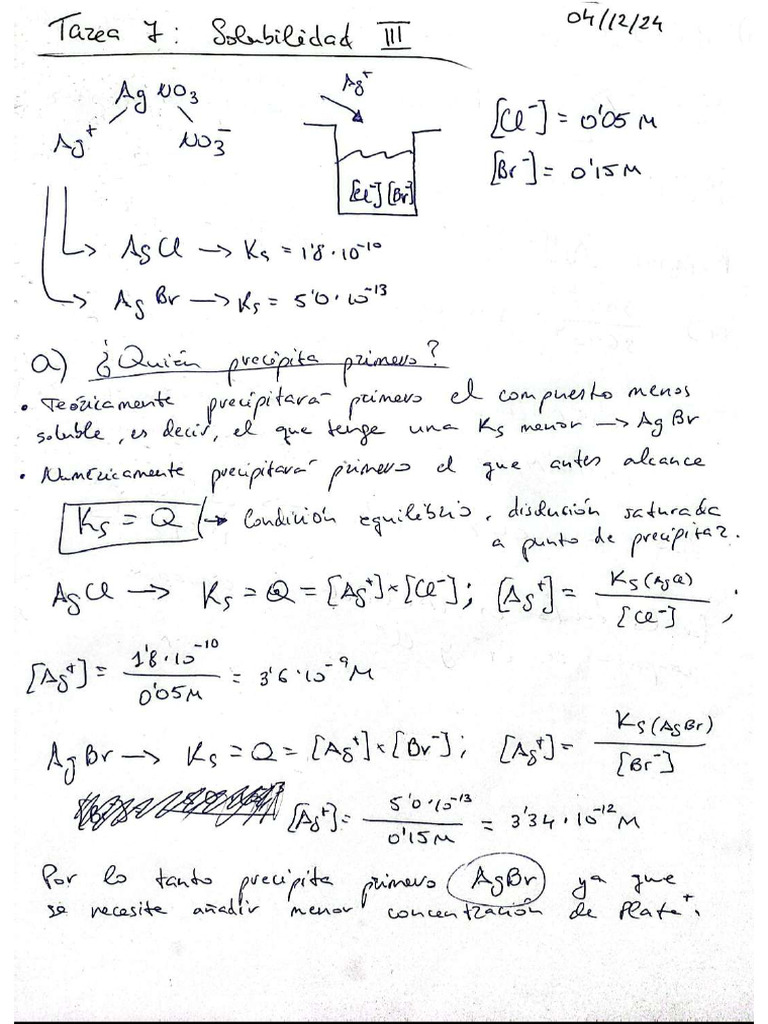 Tarea 7: Solubilidad III
04/12/24
AgNO₃
Ag⁺ NO₃⁻
Ag⁺
[Cl⁻] [Br⁻]
[Cl⁻] = 0'05 M
[Br⁻] = 0'15 M
→ AgCl → Ks = 1'8·10⁻¹⁰
→ AgBr → Ks = 5'0·10⁻¹³
a) ¿Quién precipita primero?
• Teóricamente precipitará primero el compuesto menos
soluble, es decir, el que tenga una Ks menor → AgBr
• Numéricamente precipitará primero el que antes alcance
Ks = Q → Condición equilibrio, disolución saturada
a punto de precipitar.
AgCl → Ks = Q = [Ag⁺]×[Cl⁻]; [Ag⁺] = Ks(AgCl) / [Cl⁻] ;
[Ag⁺] = 1'8·10⁻¹⁰ / 0'05M = 3'6·10⁻⁹ M
AgBr → Ks = Q = [Ag⁺]×[Br⁻]; [Ag⁺] = Ks(AgBr) / [Br⁻]
[Ag⁺] = 5'0·10⁻¹³ / 0'15M = 3'34·10⁻¹² M
Por lo tanto precipita primero AgBr ya que
se necesita añadir menor concentración de Plata⁺.